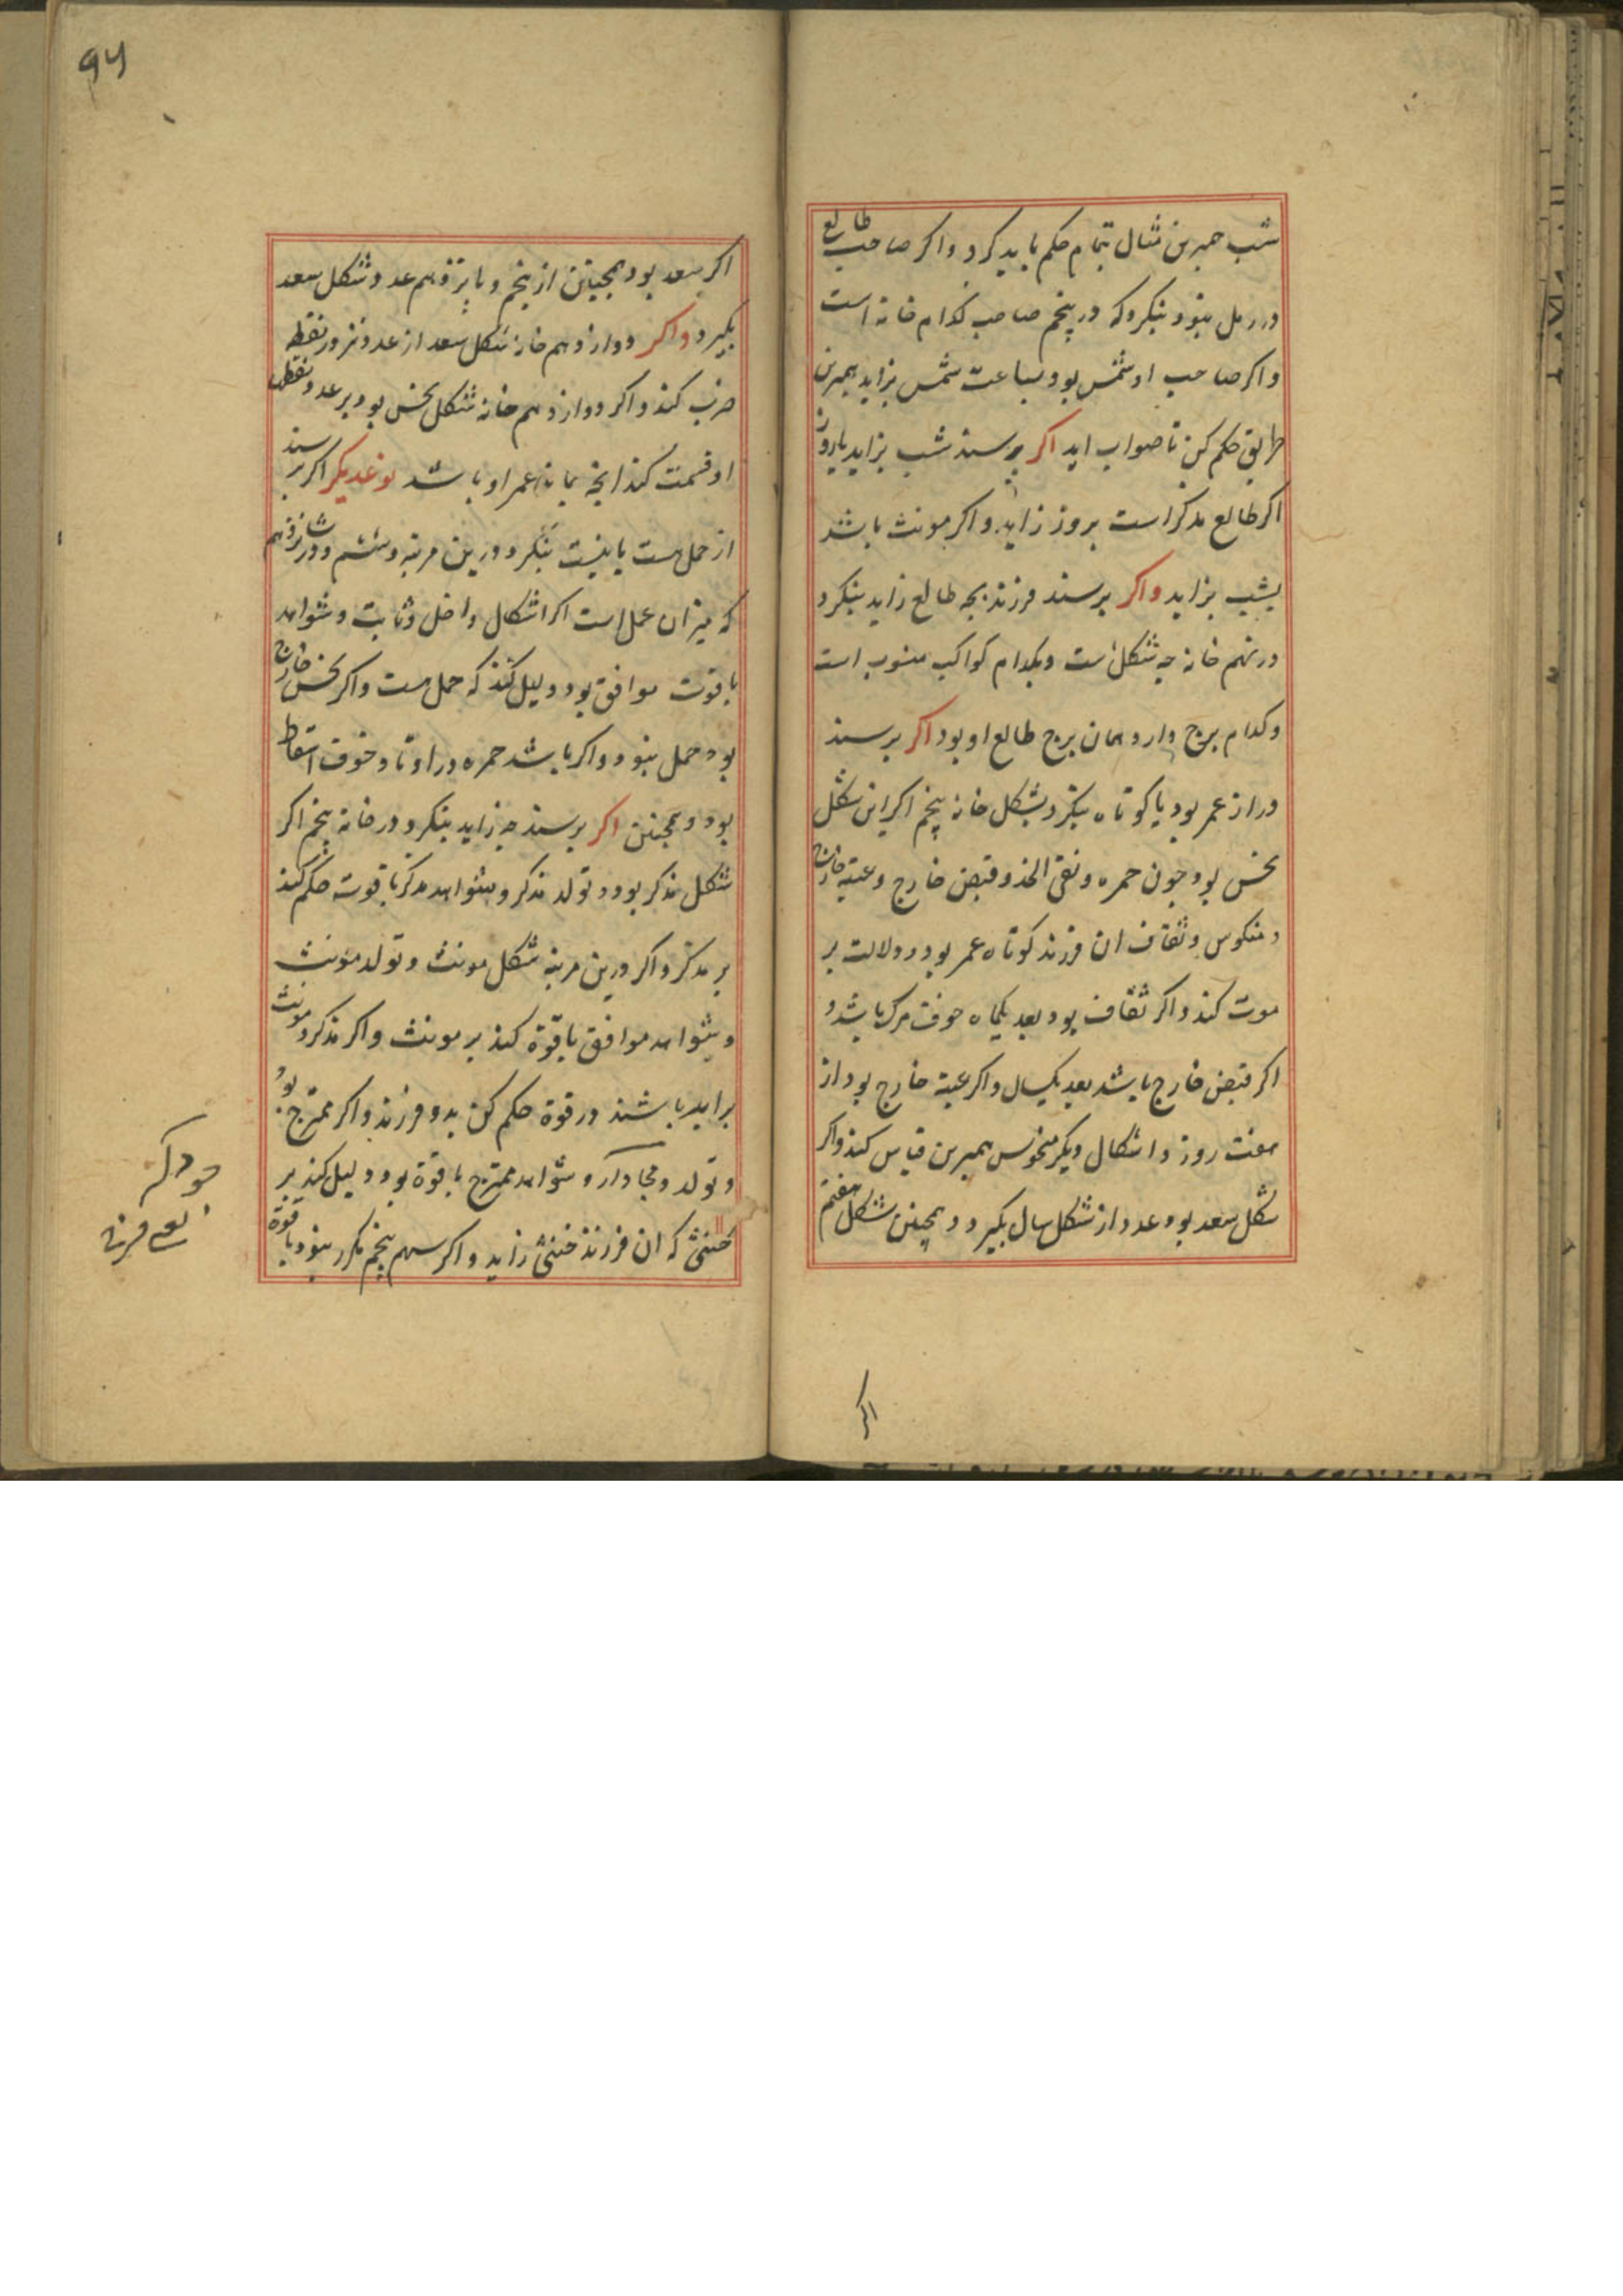 شب همبرین مثال تمام حکم باید کرد واکر صاحب طالع
در رمل نبود بنکرد که در پنجم صاحب کدام خانه است
واکر صاحب او شمس بود بساعت شمس بزاید همبرین
طریق حکم کن تا صواب اید اکر پرسند شب بزاید یا روز
اکر طالع مذکر است بروز زاید واکر مونث باشد
بشب بزاید واکر پرسند فرزند بچه طالع زاید بنکرد
در نهم خانه چه شکل است وبکدام کواکب منسوب است
وکدام برج دارد همان برج طالع او بود اکر پرسند
دراز عمر بود یا کوتاه بنکرد بشکل خانه پنجم اکر این شکل
نحس بود چون حمره ونقی الخد وقبض خارج وعتبه خارج
ومنکوس وثقاف ان فرزند کوتاه عمر بود ودلالت بر
موت کند واکر ثقاف بود بعد یکماه خوف مرک باشد و
اکر قبض خارج باشد بعد یکسال واکر عتبه خارج بود از
هفت روز واشکال دیکر منحوس همبرین قیاس کند واکر
شکل سعد بود عدد از شکل سال بکیرد وهمچنین شکل هفتم
اکر
اکر سعد بود همچنین از پنجم و پانزدهم عدد شکل سعد
بکیرد واکر دوازدهم خانه شکل سعد از عدد نزد نقطه
ضرب کند واکر دوازدهم خانه شکل نحس بود بر عدد نقطه
او قسمت کند انچه بماند عمر او باشد نوع دیکر اکر پرسند
از حمل هست یا نیست بنکرد درین مرتبه وششم ودر شانزدهم
که میزان عمل است اکر اشکال داخل وثابت وشواهد
با قوت موافق بود دلیل کند که حمل هست واکر نحس خارج
بود حمل نبود واکر باشد حمره در اوتاد خوف اسقاط
بود وهمچنین اکر پرسند چه زاید بنکرد در خانه پنجم اکر
شکل مذکر بود وتولد مذکر وشواهد مذکر با قوت حکم کند
بر مذکر واکر درین مرتبه شکل مونث وتولد مونث
وشواهد موافق با قوة کند بر مونث واکر مذکر ومونث
برابر باشند در قوة حکم کن بدو فرزند واکر ممتزج بود
وتولد ومجاور وشواهد ممتزج با قوة بود دلیل کند بر
خنثی که ان فرزند خنثی زاید واکر سهم پنجم مکرر نبود با قوة